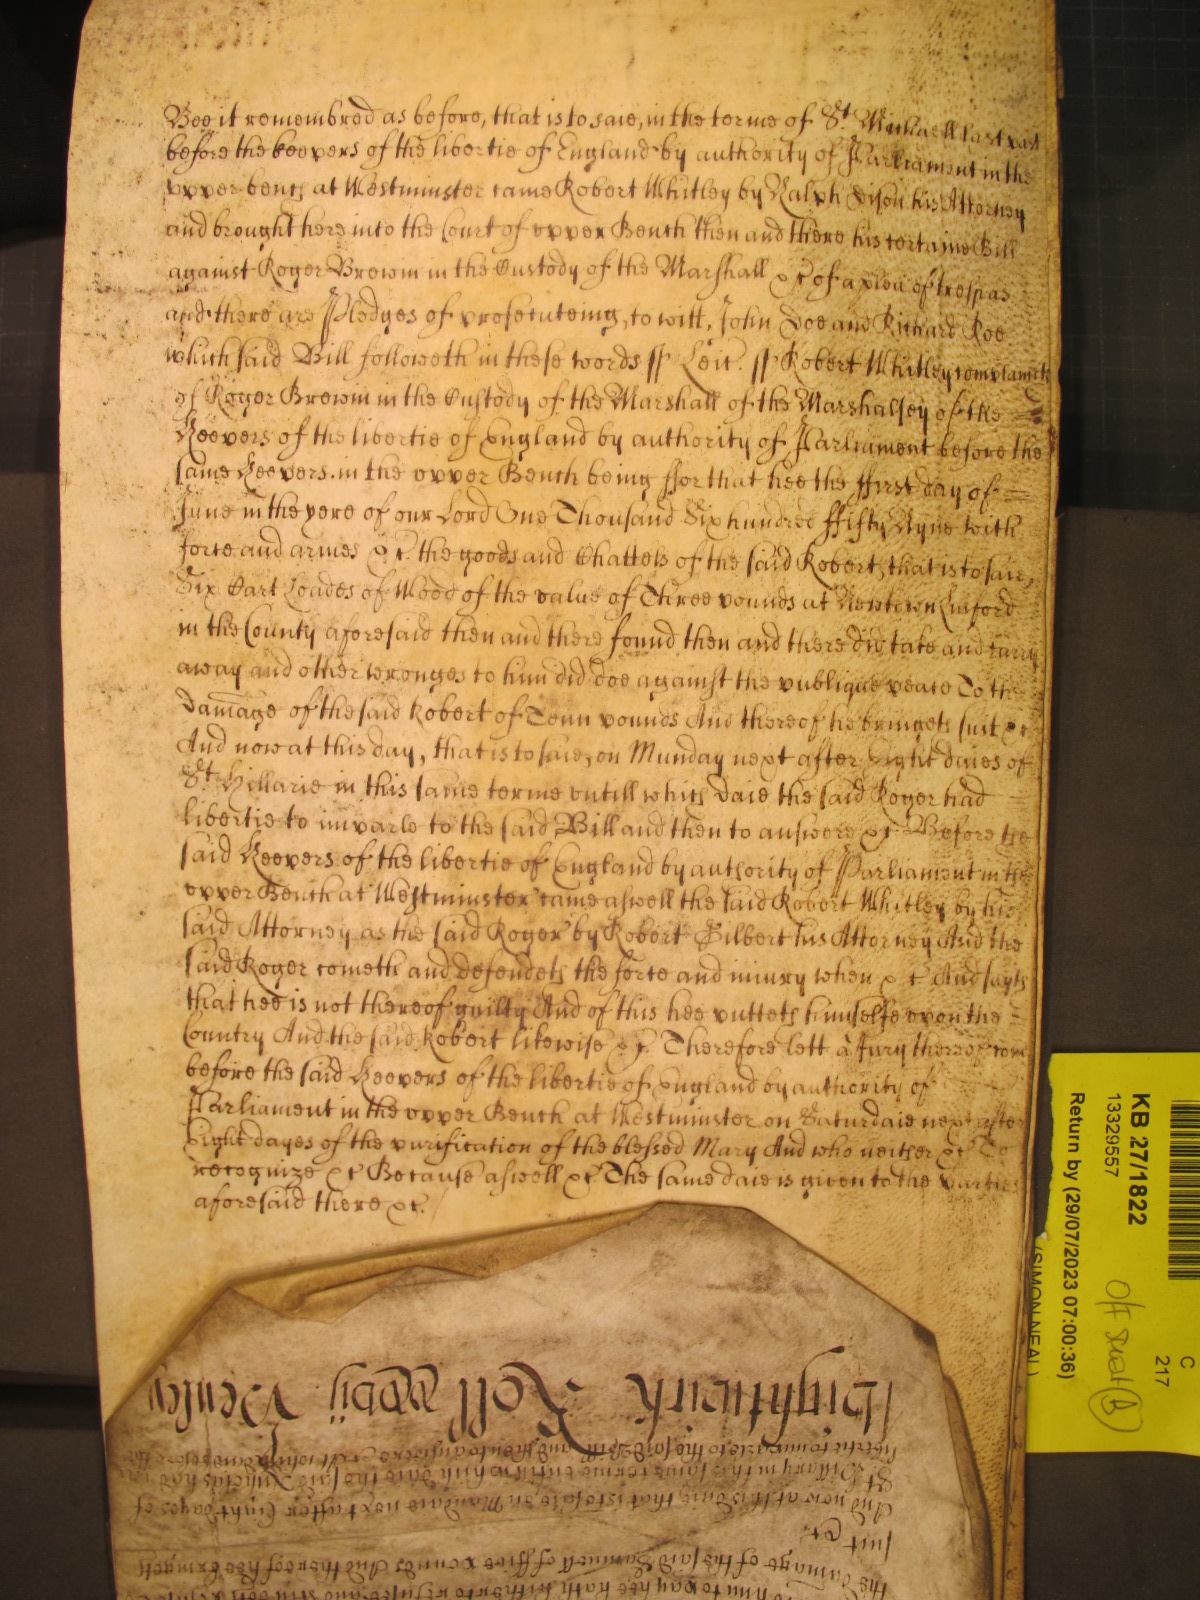 Bee it remembred as before, that is to saie, in the terme of St. Michaell last past
before the keepers of the libertie of England by authority of Parliament in the
upper bench at Westminster came Robert Whitley by Ralph Dison his Attorney
and brought here into the Court of upper Bench then and there his certaine Bill
against Roger Browin in the Custody of the Marshall &c of a plea of trespas
and there are Pledges of prosecuteing, to witt, John Doe and Richard Roe
which said Bill followeth in these words ss Leic. ss Robert Whitley complaineth
of Roger Browin in the Custody of the Marshall of the Marshalsey of the
Keepers of the libertie of England by authority of Parliament before the
same Keepers in the upper Bench being ffor that hee the ffirst day of
June in the yere of our Lord One Thousand Six hundred ffifty Nyne with
force and armes &c. the goods and Chattells of the said Robert, that is to saie,
Six Cart Loades of Wood of the value of Three pounds at Newtown
in the County aforesaid then and there found then and there did take and carry
away and other wronges to him did doe against the publique peace To the
damage of the said Robert of Tenn pounds And thereof he bringeth suit &c
And now at this day, that is to saie, on Munday next after Eight daies of
St. Hillarie in this same terme untill which daie the said Roger had
libertie to imparle to the said Bill and then to answere &c Before the
said Keepers of the libertie of England by authority of Parliament in the
upper Bench at Westminster came aswell the said Robert Whitley by his
said Attorney as the said Roger by Robert Gilbert his Attorney And the
said Roger cometh and defendeth the force and iniury when &c And sayth
that hee is not thereof guilty And of this hee putteth himselfe upon the
Country And the said Robert likewise &c. Therefore lett a Jury thereof come
before the said Keepers of the libertie of England by authority of
Parliament in the upper Bench at Westminster on Saturdaie next after
Eight dayes of the purification of the blessed Mary And who neither &c To
recognize &c Because aswell &c The same daie is given to the parties
aforesaid there &c.
KB 27/1822
13329557
Return by (29/07/2023 07:00:36)
(SIMON NEAL)
C
217
Roll
libertie to imparle to the said Bill and then to answere
St. Hillary in this same terme untill which daie the said had
And now at this daie that is to saie on Mundaie next after Eight dayes of
suit &c
the damage of the said Samuell of ffive pounds And thereof hee bringeth